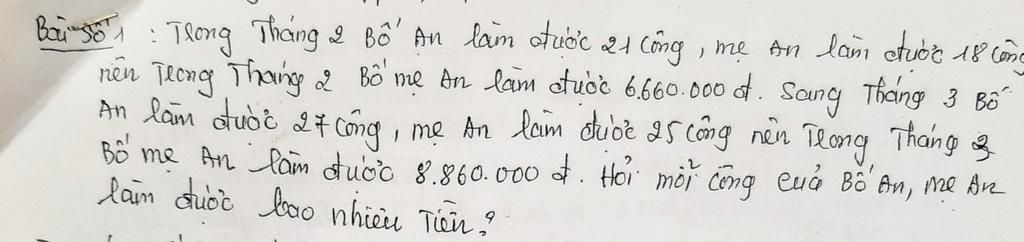 Bài số 1 : Trong Tháng 2 Bố An làm được 21 công, mẹ An làm được 18 công
nên Trong Tháng 2 Bố mẹ An làm được 6.660.000 đ. Sang Tháng 3 Bố
An làm được 27 công, mẹ An làm được 25 công nên Trong Tháng 3
Bố mẹ An làm được 8.860.000 đ. Hỏi mỗi công của Bố An, mẹ An
làm được bao nhiêu Tiền?